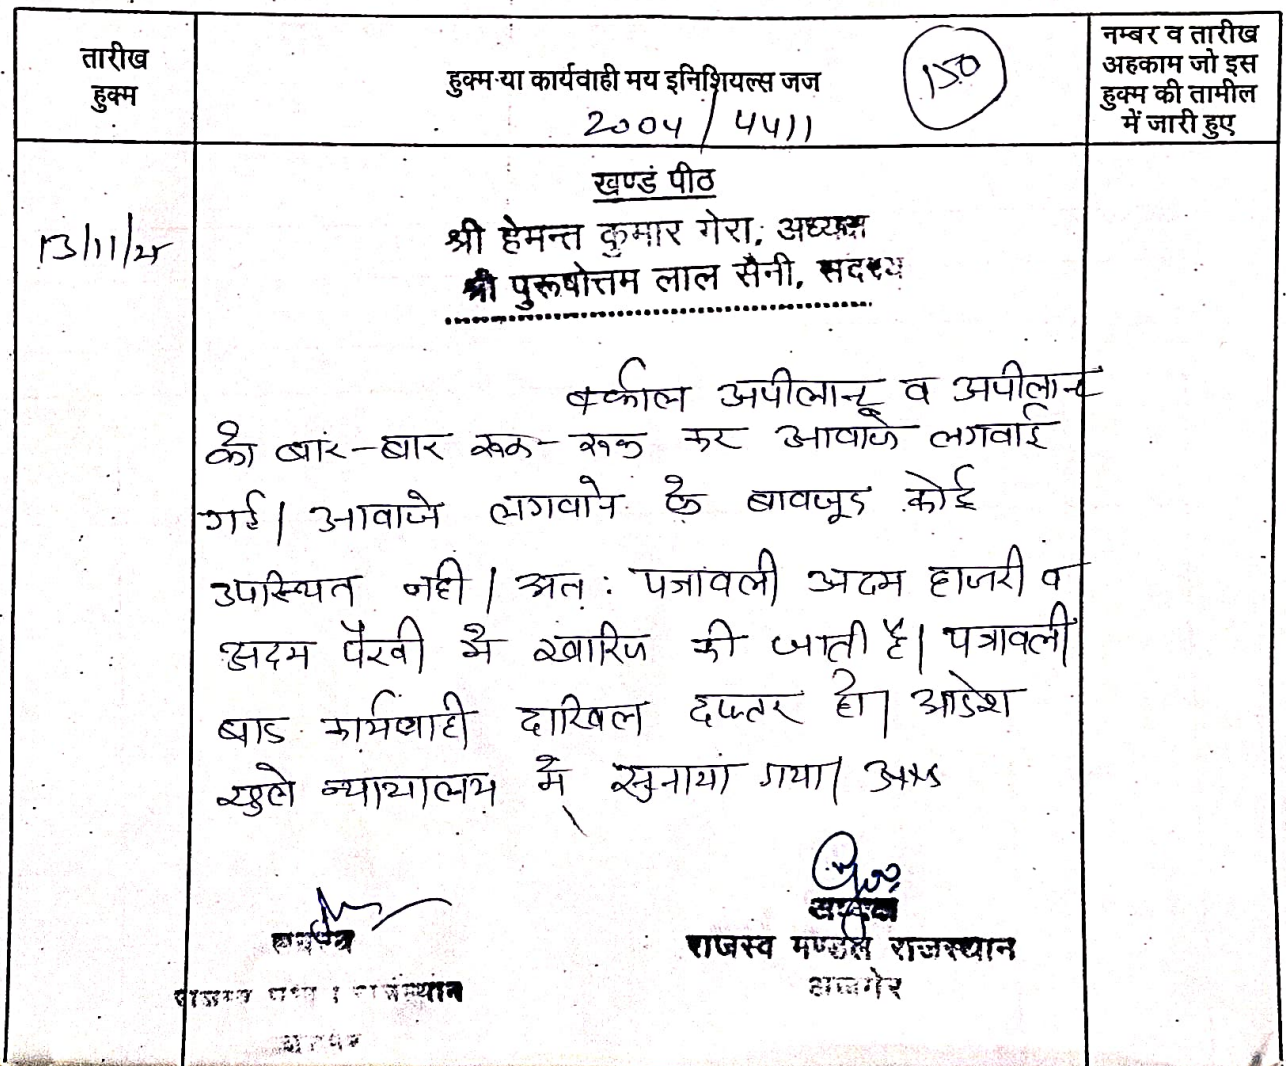 तारीख
हुक्म
हुक्म या कार्यवाही मय इनिशियल्स जज
150
नम्बर व तारीख
अहकाम जो इस
हुक्म की तामील
में जारी हुए
2004/4411
खण्डं पीठ
13/11/25
श्री हेमन्त कुमार गेरा, अध्यक्ष
श्री पुरूषोत्तम लाल सैनी, सदस्य
वकील अपीलान्ट व अपीलान्ट
को बार-बार रूक-रूक कर आवाजे लगवाई
गई। आवाजे लगवाने के बावजूद कोई
उपस्थित नही। अत: पत्रावली अदम हाजरी व
अदम पैरवी मे खारिज की जाती है। पत्रावली
बाद कार्यवाही दाखिल दफ्तर हो। आदेश
खुले न्यायालय मे सुनाया गया।
राजस्व मण्डल राजस्थान
अजमेर